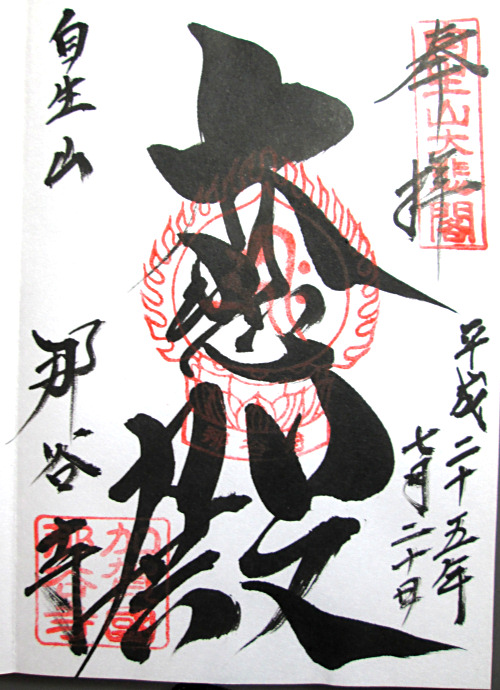 奉拝
自生山大悲閣
平成二十五年
七月二十日
大悲殿
自生山
那谷寺
加賀国
那谷寺